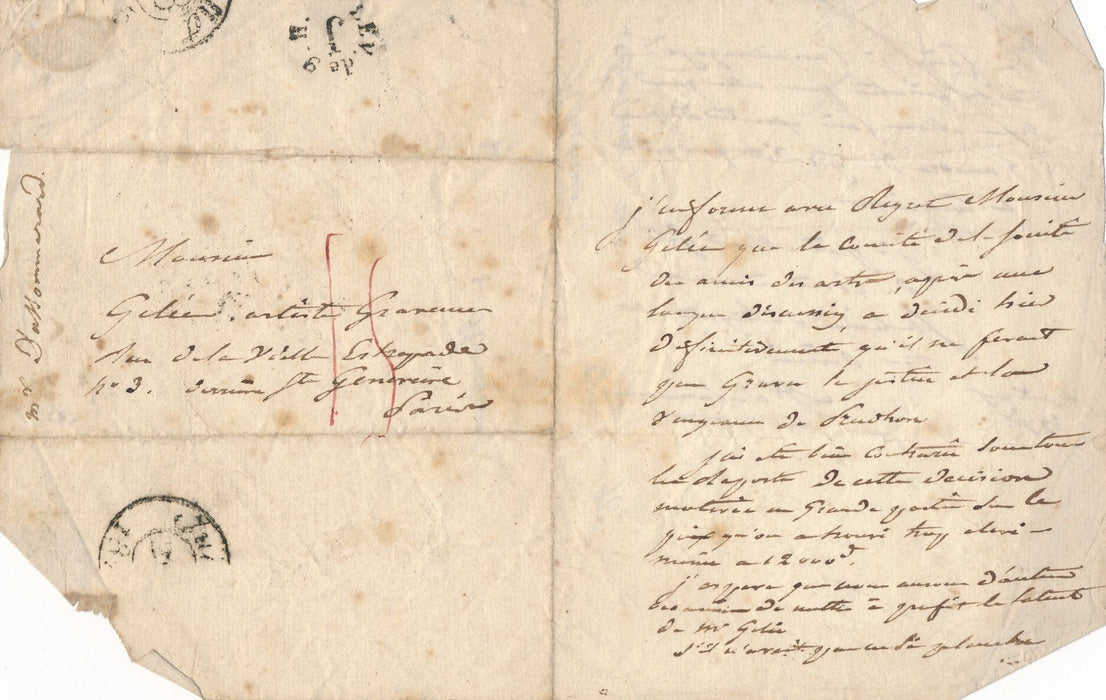 Mr Dusommerard.
Monsieur
Gelée, artiste Graveur
Rue de la Vielle Estrapade
no 3. derrière Ste Geneviève
Paris
j'informe avec Regret Monsieur
Gelée que le Comité de la société
des amis des arts, après une
longue discussion a décidé hier
définitivement qu'il ne feroit
pas Graver la justice et la
Vengeance de Prudhon
j'ai été bien contrarié sous tous
les Rapports de cette decision
motivée en Grande partie sur le
prix qu'on a trouvé trop elevé
même a 12 000 f.
j'espere que nous aurons d'autres
occasions de mettre à profit le talent
de Mr Gelée
S'il n'avait pas